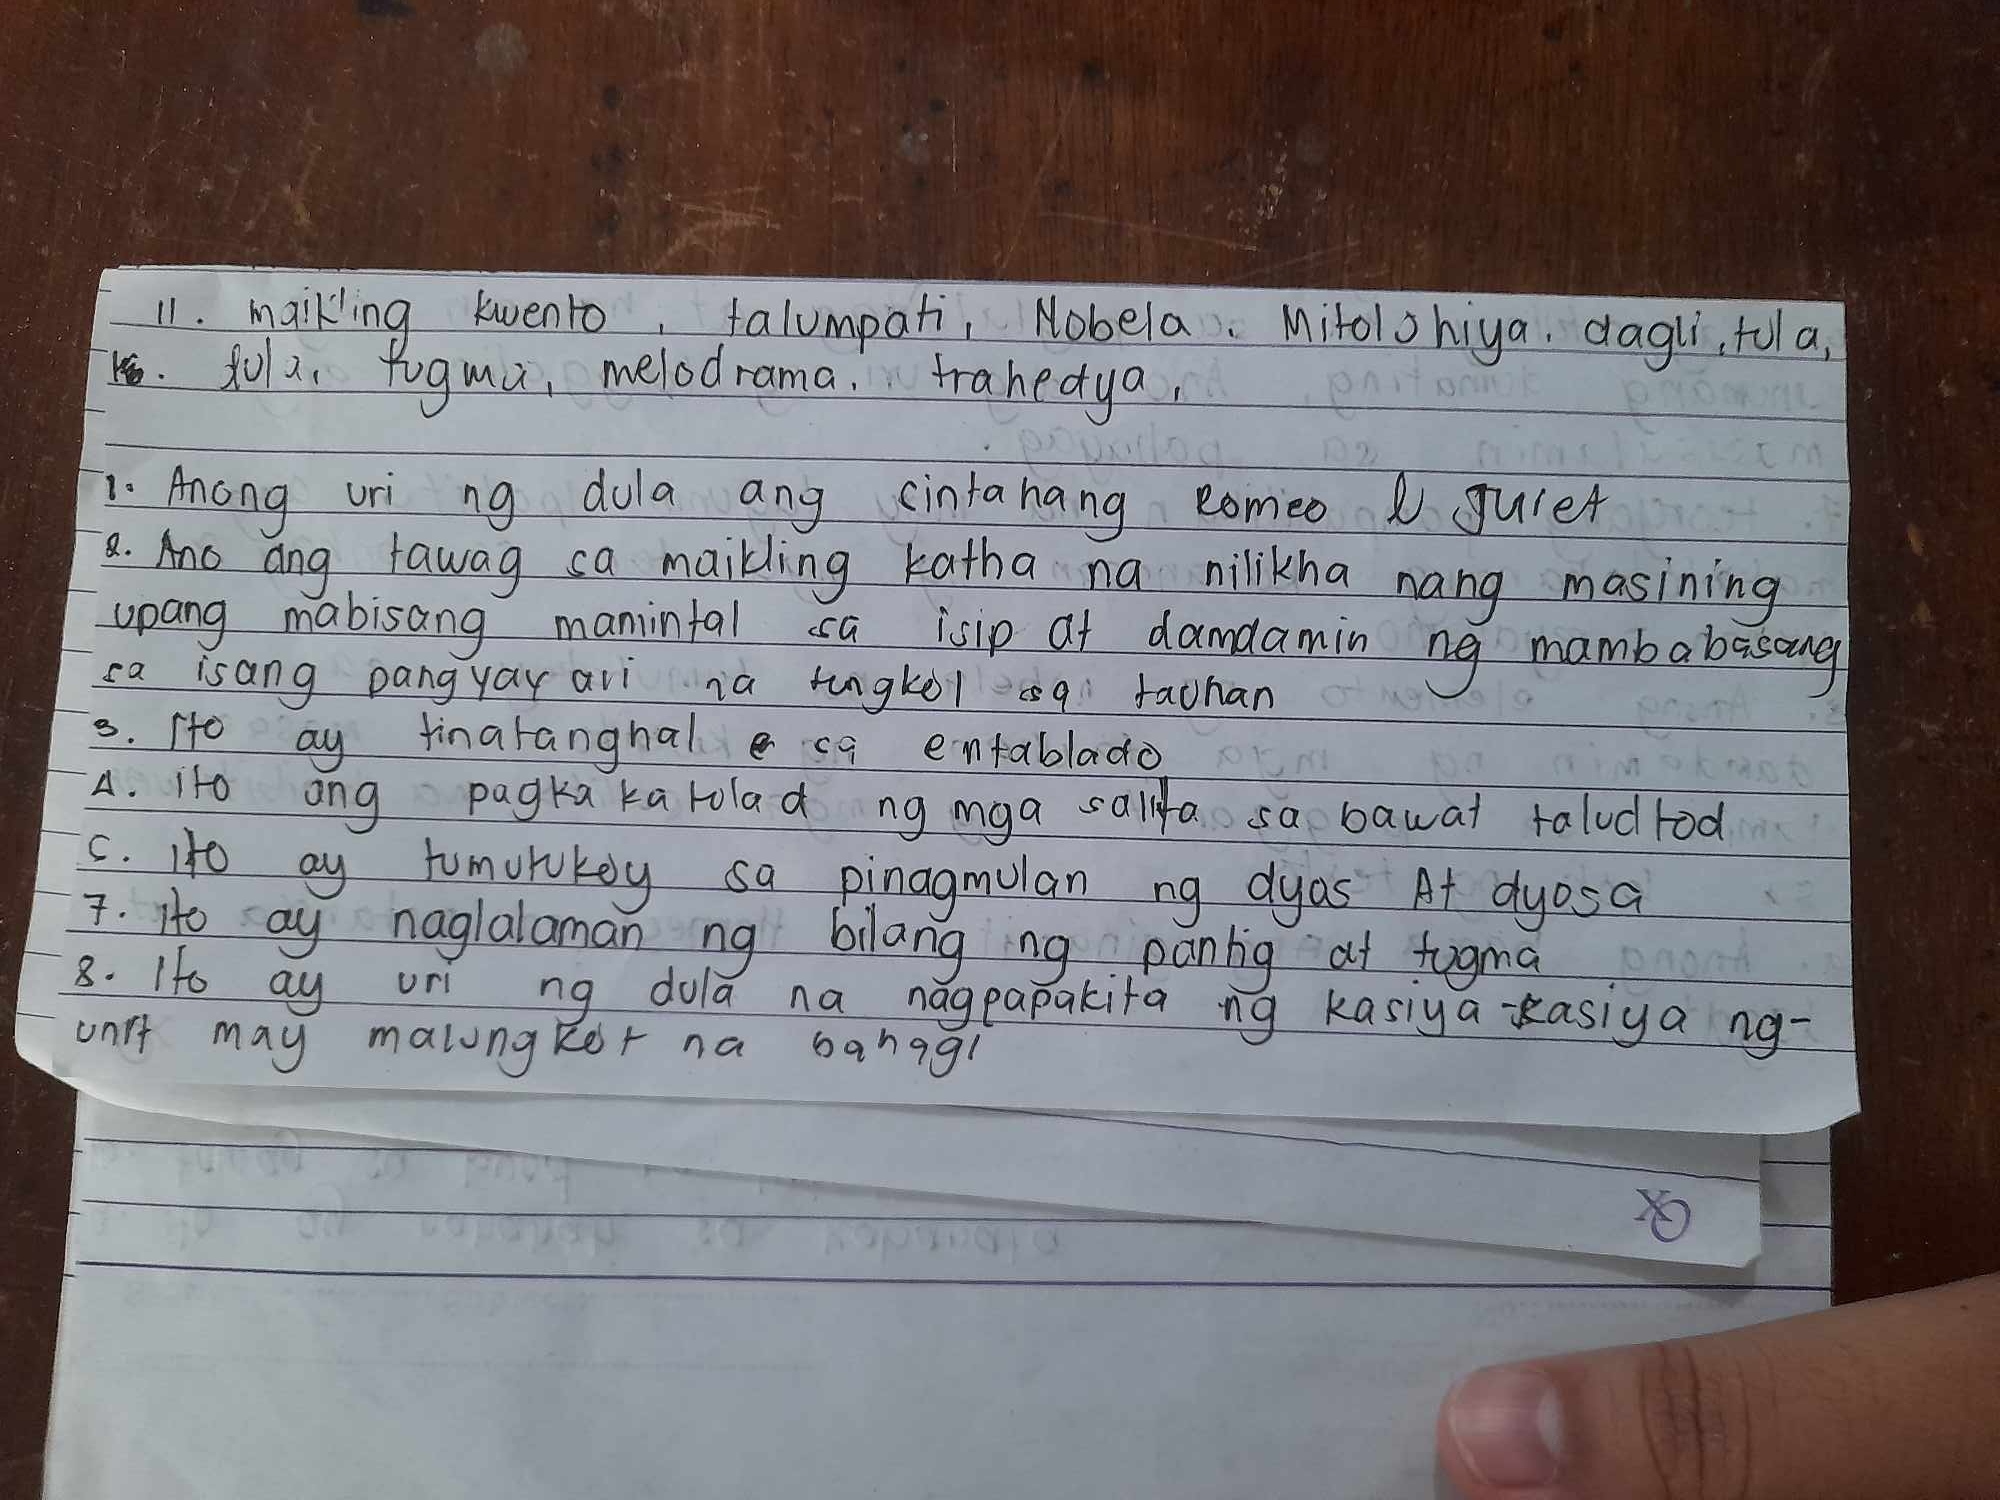 11. maikling kwento, talumpati, Nobela. Mitolohiya. dagli, tula,
dula, tugma, melodrama. trahedya,
1. Anong uri ng dula ang cintahang Romeo & Juliet
2. Ano ang tawag sa maikling katha na nilikha nang masining
upang mabisang mamintal sa isip at damdamin ng mambabasang
sa isang pangyayari na tungkol sa tauhan
3. Ito ay tinatanghal sa entablado
4. ito ang pagkakatolad ng mga salita sa bawat taludtod
5. ito ay tumutukoy sa pinagmulan ng dyos At dyosa
7. ito ay naglalaman ng bilang ng pantig at tugma
8. Ito ay uri ng dula na nagpapakita ng kasiya-kasiya ng-
unit may malungkot na bahagi